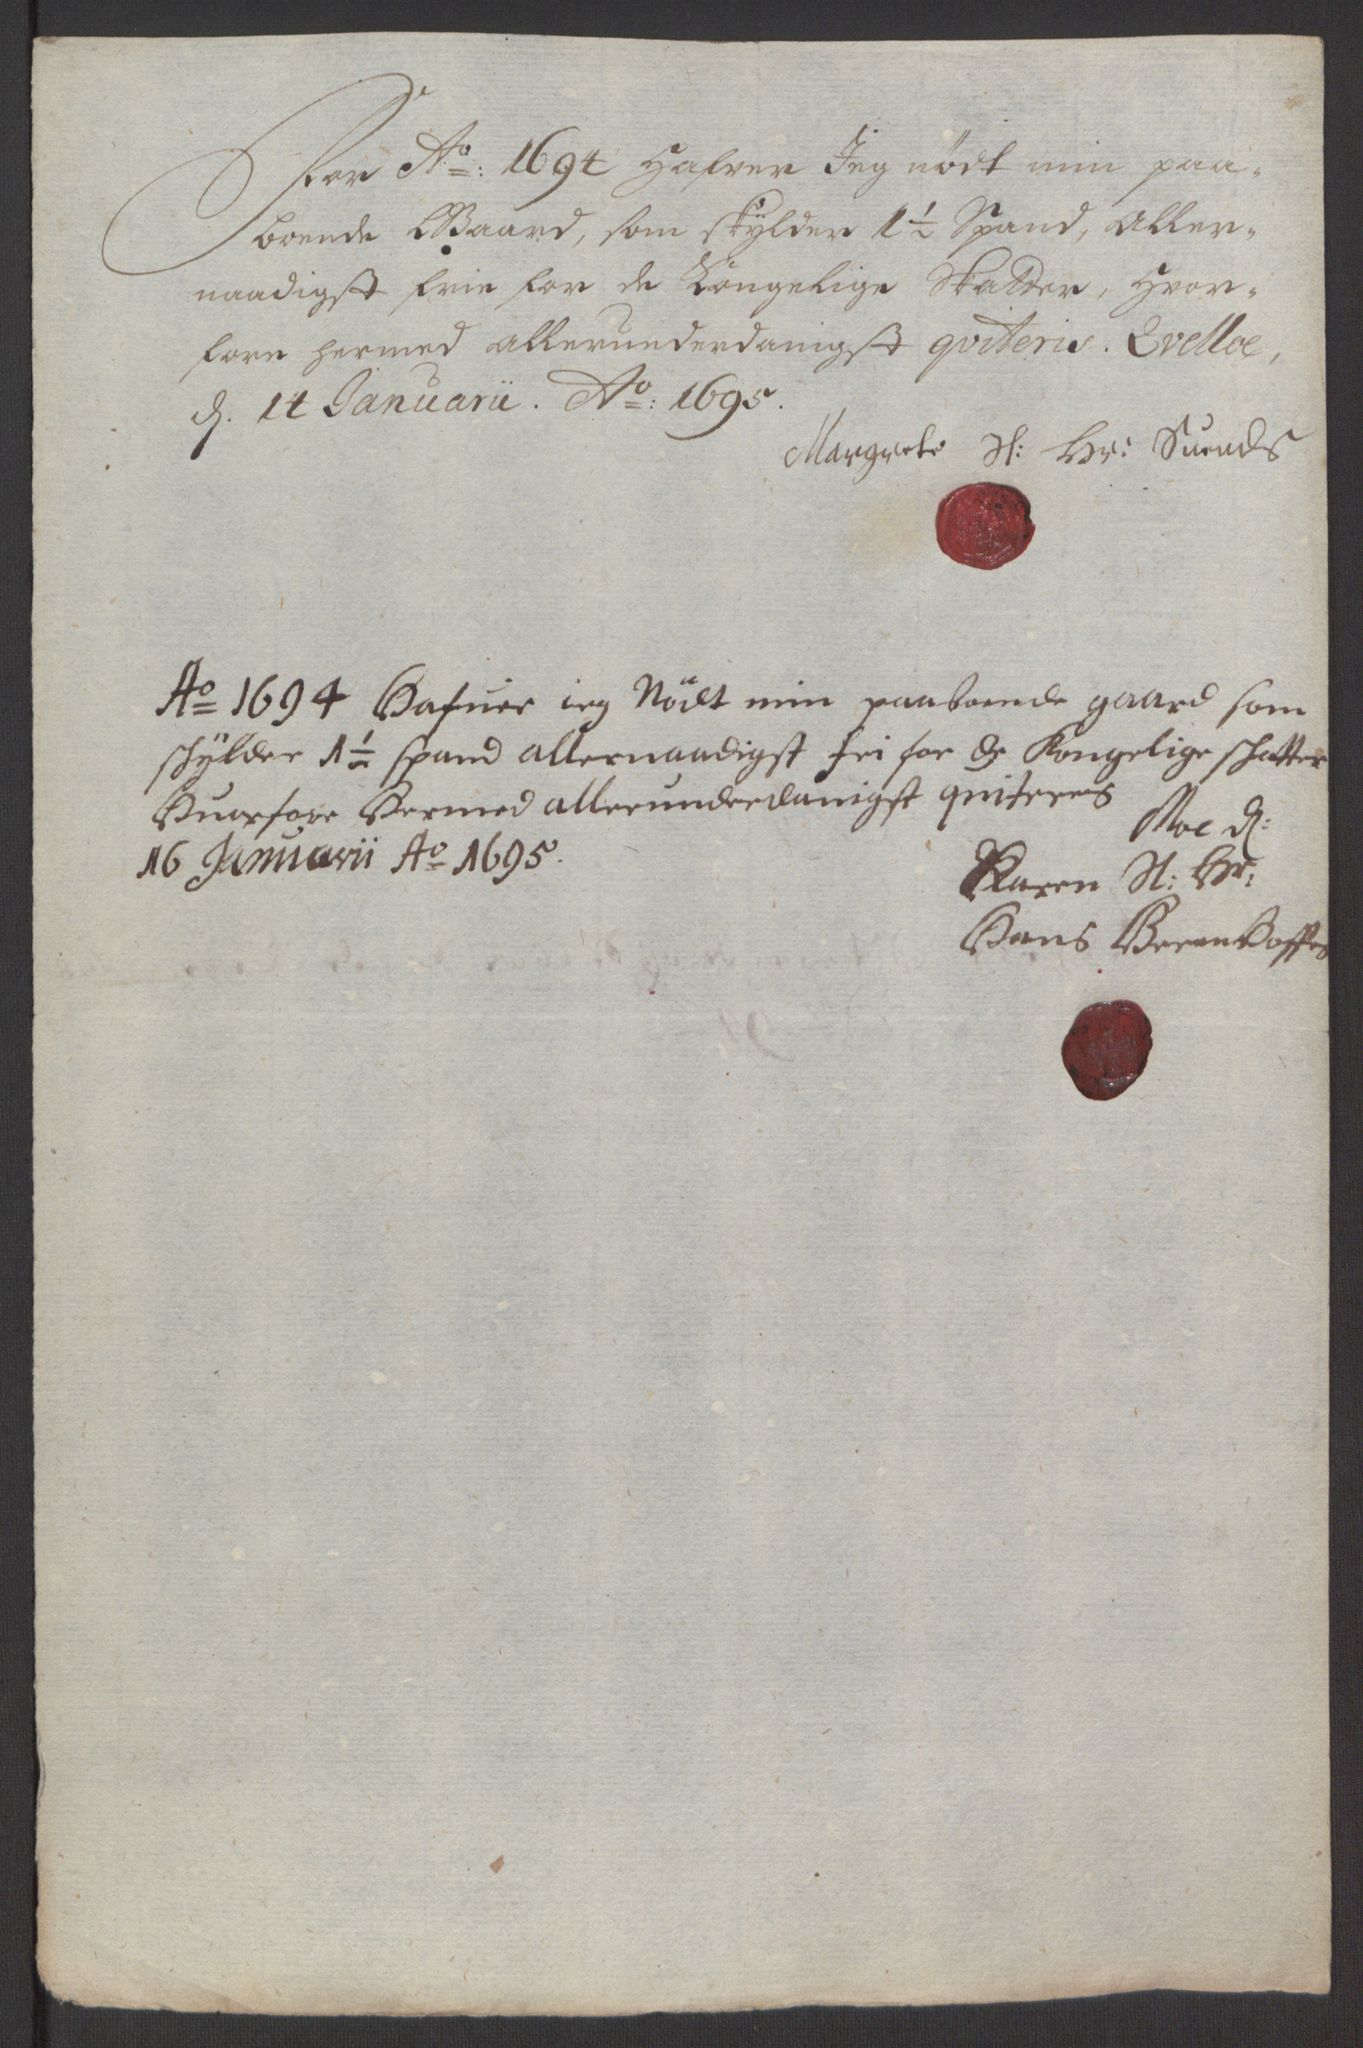 For Ao: 1694 Hafver Jeg nödt min paa-
boende Gaard, som skylder 1½ Spand, Aller-
naadigst frie for de Kongelige Skatter, Hvor-
fore hermed allerunderdanigst qviteris. Evelloe,
d. 14 Januarii. Ao: 1695.
Margrete Sl: Hr: Suends
Ao 1694 Hafuer ieg Nödt min paaboende gaard som
schÿlder 1½ spand allernaadigst fri for de Kongelige schatter
Huorfore Hermed allerunderdanigst quiteres
Moe d:
16 Januarii Ao 1695.
Karen Sl: Hr:
Hans